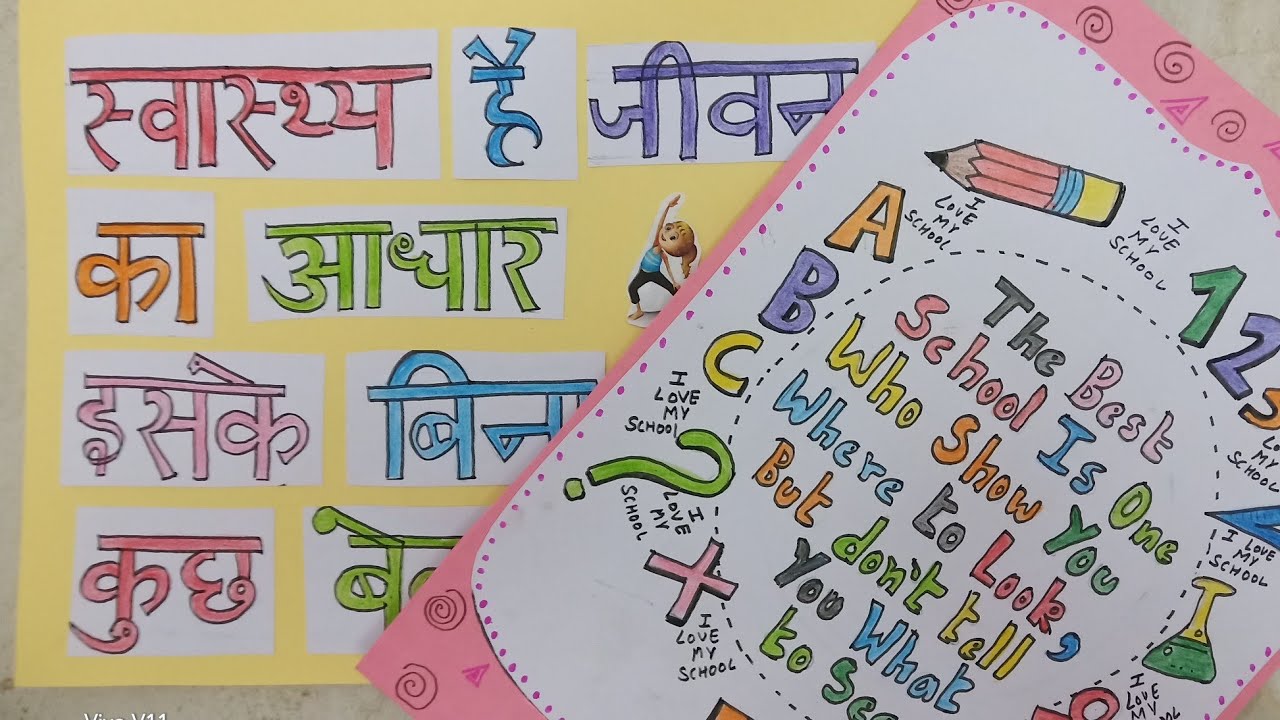 स्वास्थ्य है जीवन
का आधार
इसके बिना
कुछ
The Best
School Is One
Who Show You
Where to Look,
But don't tell
You What
to See
A
B
C
1
2
3
?
×
I
LOVE
MY
SCHOOL
I
LOVE
MY
SCHOOL
I
LOVE
MY
SCHOOL
I
LOVE
MY
SCHOOL
I
LOVE
MY
SCHOOL
I LOVE
MY
SCHOOL
I
LOVE
MY
SCHOOL
I
LOVE
MY
SCHOOL
Vivo V11